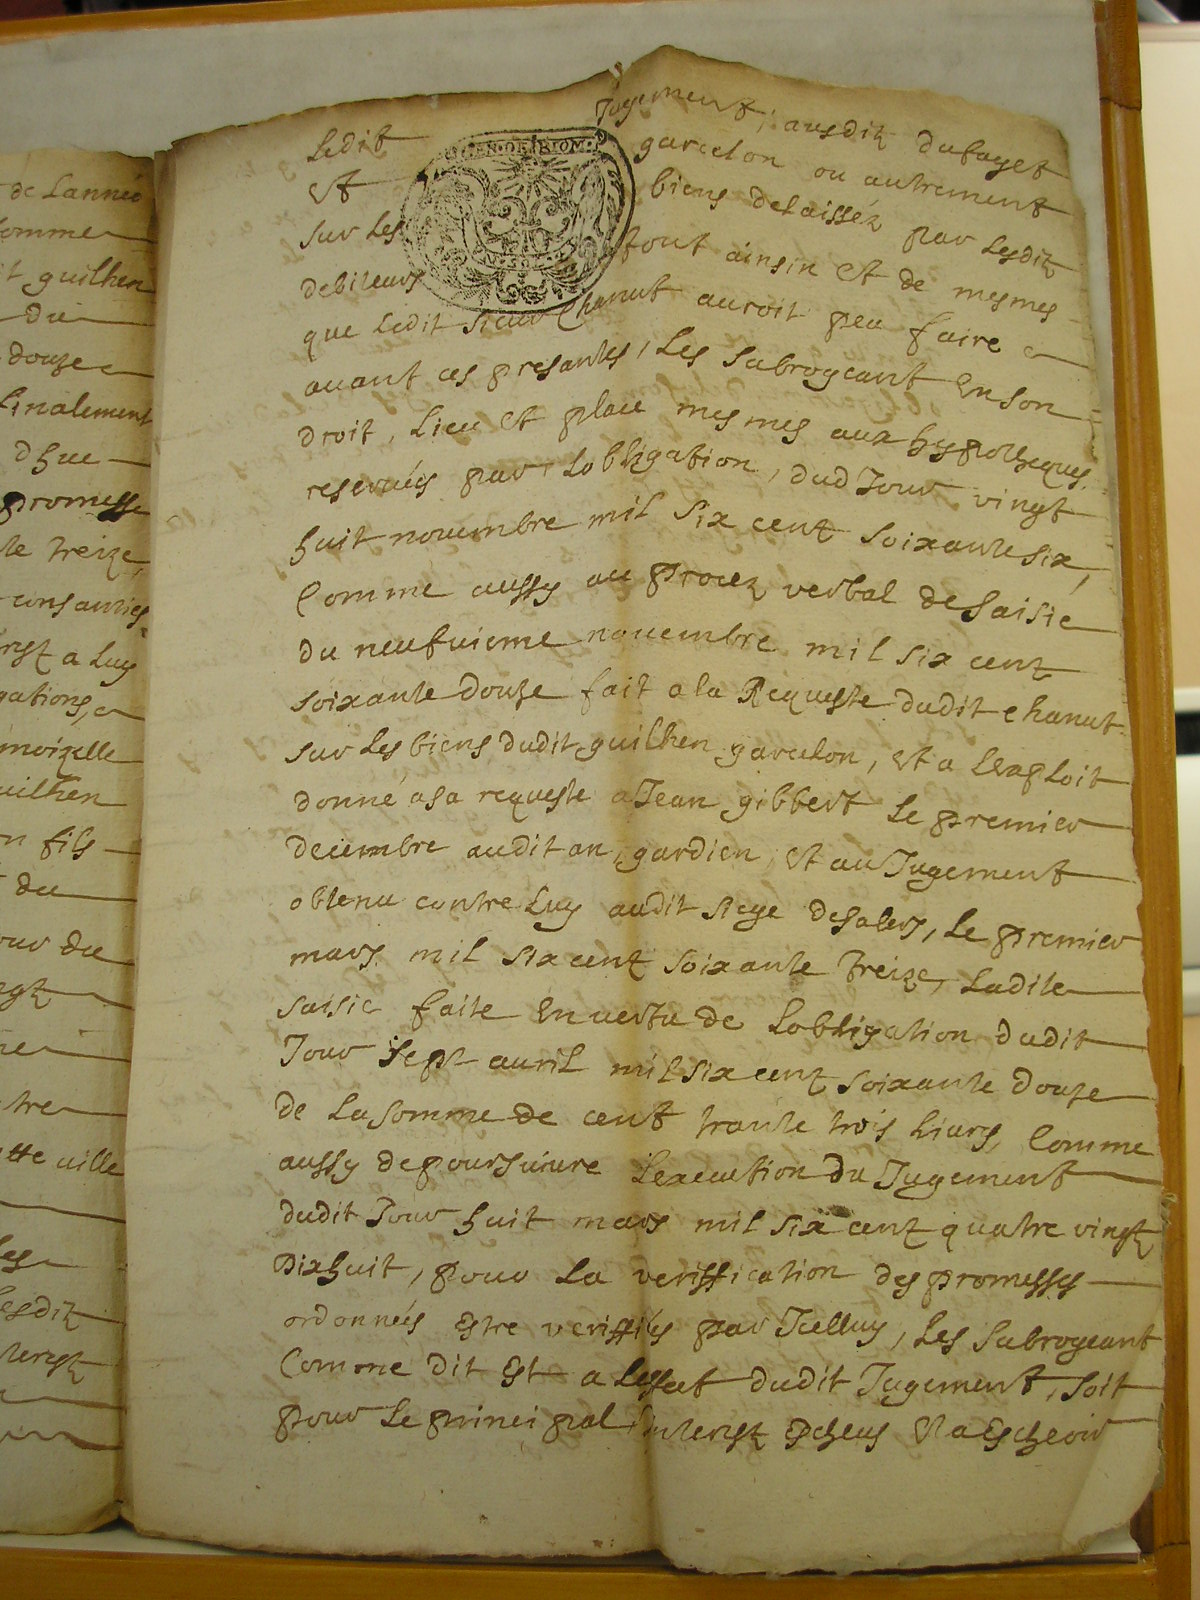 de Lannée
somme
it guilhen
du
douze
finalement
dhue
promesse
le treize,
consanties
a Luy
gations,
moizelle
uilhen
n fils
du
our du
ngt
tre
tte ville
Lesdiz
terestz
GEN. DE RIOM.
Ledit Jugement, ausdiz dufayet
et garcelon ou autrement
sur Les biens delaissez par Lesdiz
debiteurs tout ainsin et de mesmes
que Ledit sieur Chanut auroit peu faire
auant ces presantes, Les Subrogeant En son
droit, Lieu et place mesmes aux hypotheques
reservées par Lobligation, dud Jour vingt
huit nouembre mil six centz soixante six,
Comme aussy au procez verbal de saisie
du neufuieme nouembre mil six centz
soixante douze fait a la Requeste dudit chanut
sur Les biens dudit guilhen garcelon, et a Lexploit
donné a sa requeste a Jean gibbert Le premier
decembre audit an, gardien, et au Jugement
obtenu contre Luy audit siege de salers, Le premier
mars mil six centz soixante treize, Ladite
saisie faite En vertu de Lobligation dudit
Jour sept auril mil six centz soixante douze
de La somme de cent trante trois Liures, Comme
aussy de poursuiure Lexecution du Jugement
dudit Jour huit mars mil six centz quatre vingtz
Dixhuit, pour La veriffication des promesses
ordonnées Estre veriffiées par Icelluy, Les Subrogeant
Comme dit Est a Leffect dudit Jugement, soit
pour Le principal Interestz Echeus Et a Escheoir